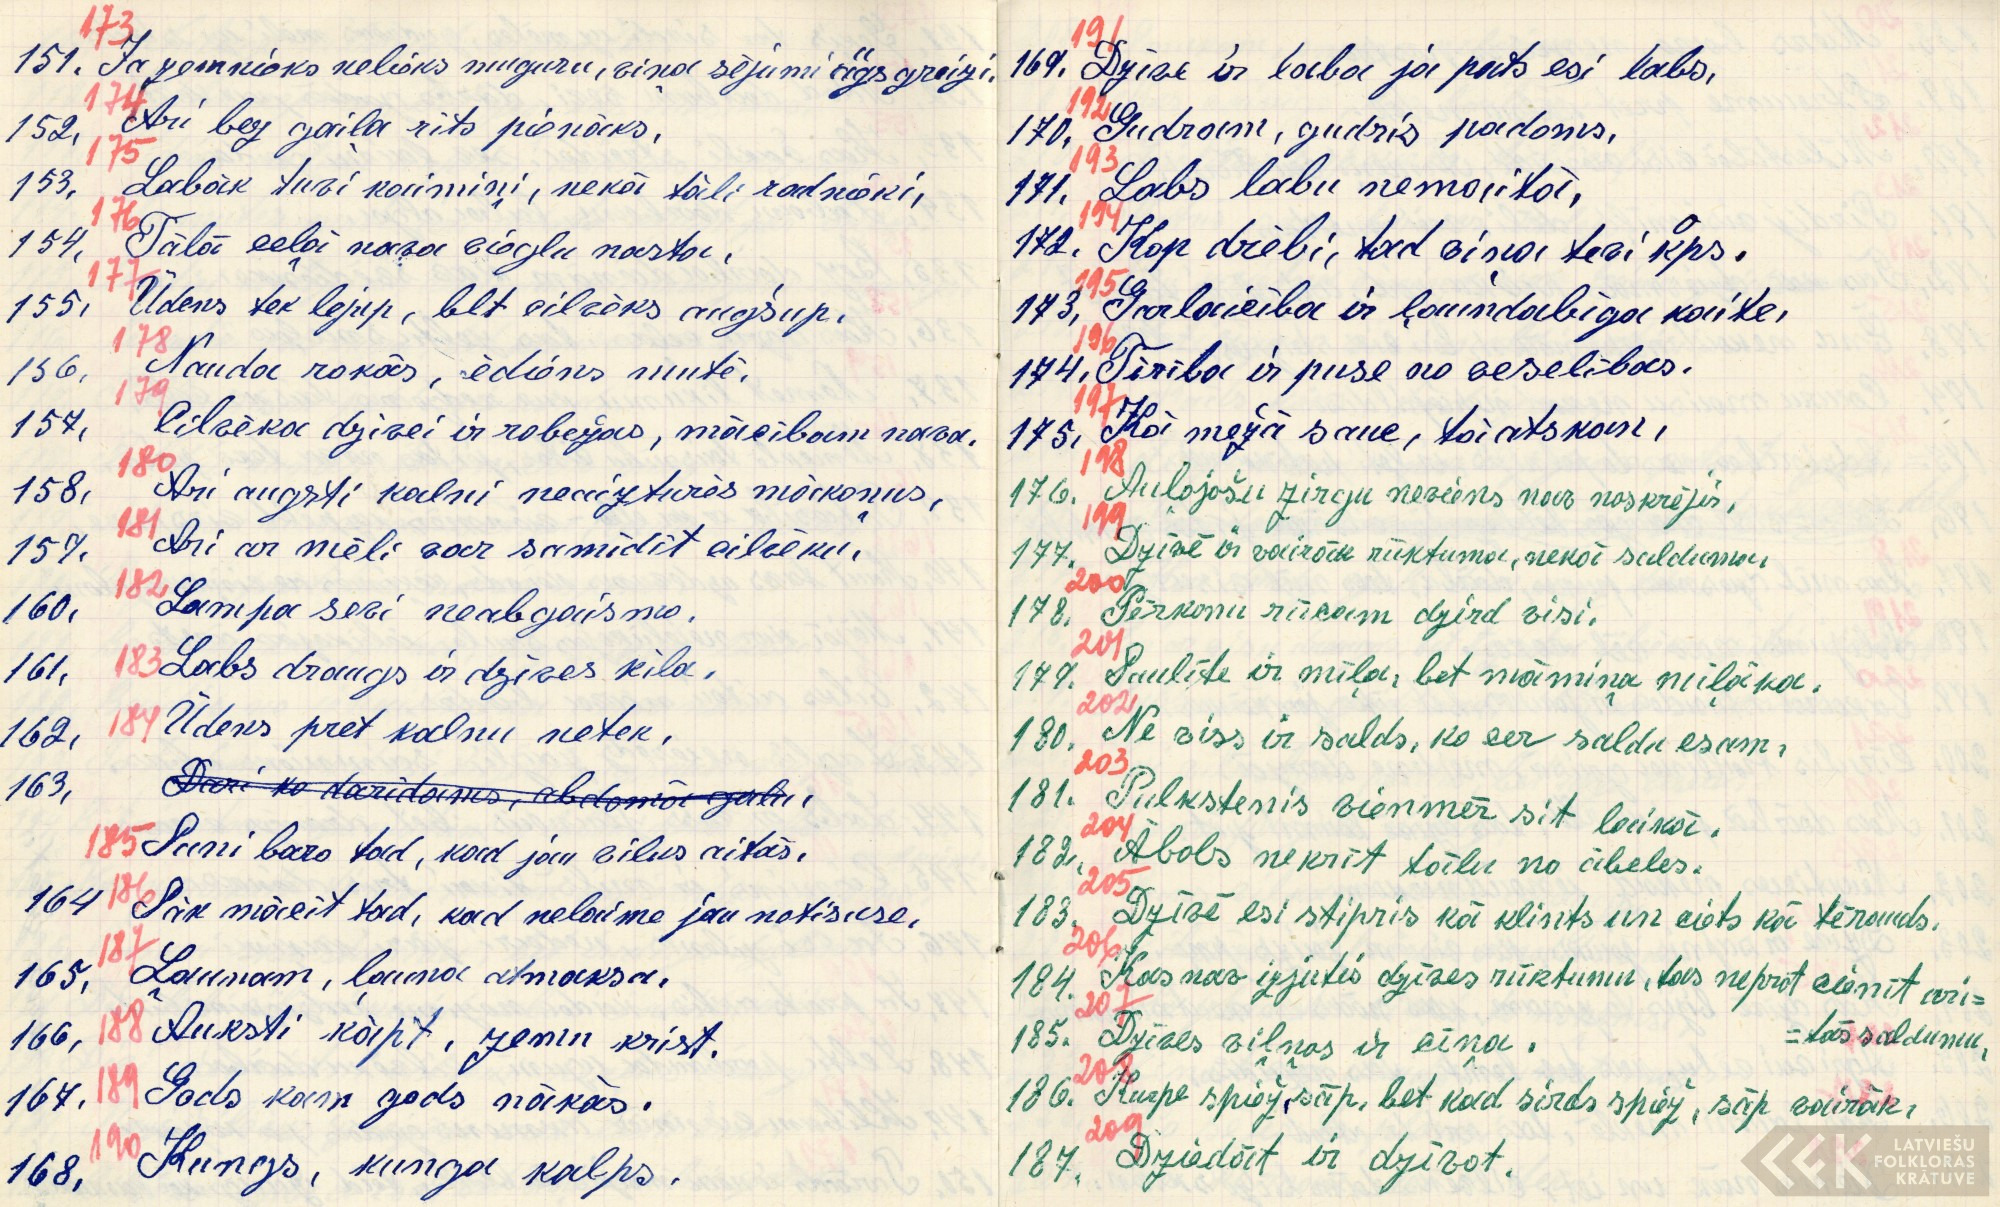 173
151. Ja zemnieks nelieks muguru, viņa sējumi augs greizi.
174
152. Ari bez gaiļa rīts pienāks.
175
153. Labāk tuvi kaimiņi, nekā tāli radnieki,
176
154. Tālā ceļā nava vieglu nastu.
177
155. Ūdens tek lejup, bet cilvēks augšup.
178
156. Nauda rokās, ēdiens mutē.
179
157. Cilvēka dzīvei ir robežas, mācībam nava.
180
158. Ari augsti kalni neaizturēs mākoņus,
181
159. Ari ar mēli var samīdīt cilvēku.
182
160. Lampa sevi neabgaismo.
161. 183 Labs draugs ir dzīves ķīla.
162. 184 Ūdens pret kalnu netek.
163. Dari ko darīdams, abdomā galu.
185 Suni baro tad, kad jau vilus aitās.
186
164 Sāk mācīt tad, kad nelaime jau notisuse.
187
165. Ļaunam, ļauna atmaksa.
166. 188 Auksti kāpt, zemu krist.
167. 189 Gods kam gods nākās.
168. 190 Kungs, kunga kalps.
191
169. Dzīve ir laba ja pats esi labs.
192
170. Gudram, gudris padoms.
193
171. Labs labu nemaitā.
194
172. Kop drēbi, tad viņa tevi kops.
195
173. Garlaicība ir ļaundabīga kaite.
196
174. Tīrība ir puse no veselības.
197
175. Kā mežā sauc, tā atskan.
198
176. Aulojošu zirgu neviens nav noskrējis.
199
177. Dzīvē ir vairāk rūktuma, nekā salduma.
200
178. Pērkonu rūcam dzird visi.
201
179. Saulīte ir mīļa, bet māmiņa mīļāka.
202
180. Ne viss ir salds, ko cer saldu esam.
203
181. Pulkstenis vienmēr sit laikā.
204
182. Ābols nekrīt tālu no ābeles.
205
183. Dzīvē esi stipris kā klints un ciets kā tērauds.
206
184. Kas nav izjutis dzīves rūktumu, tas neprot cienīt arī=
=tās saldumu.
207
185. Dzīves viļņos ir cīņa.
208
186. Kurpe spiež, sāp, bet kad sirds spiež, sāp vairāk.
209
187. Dziedāt ir dzīvot.
LATVIEŠU
FOLKLORAS
KRĀTUVE